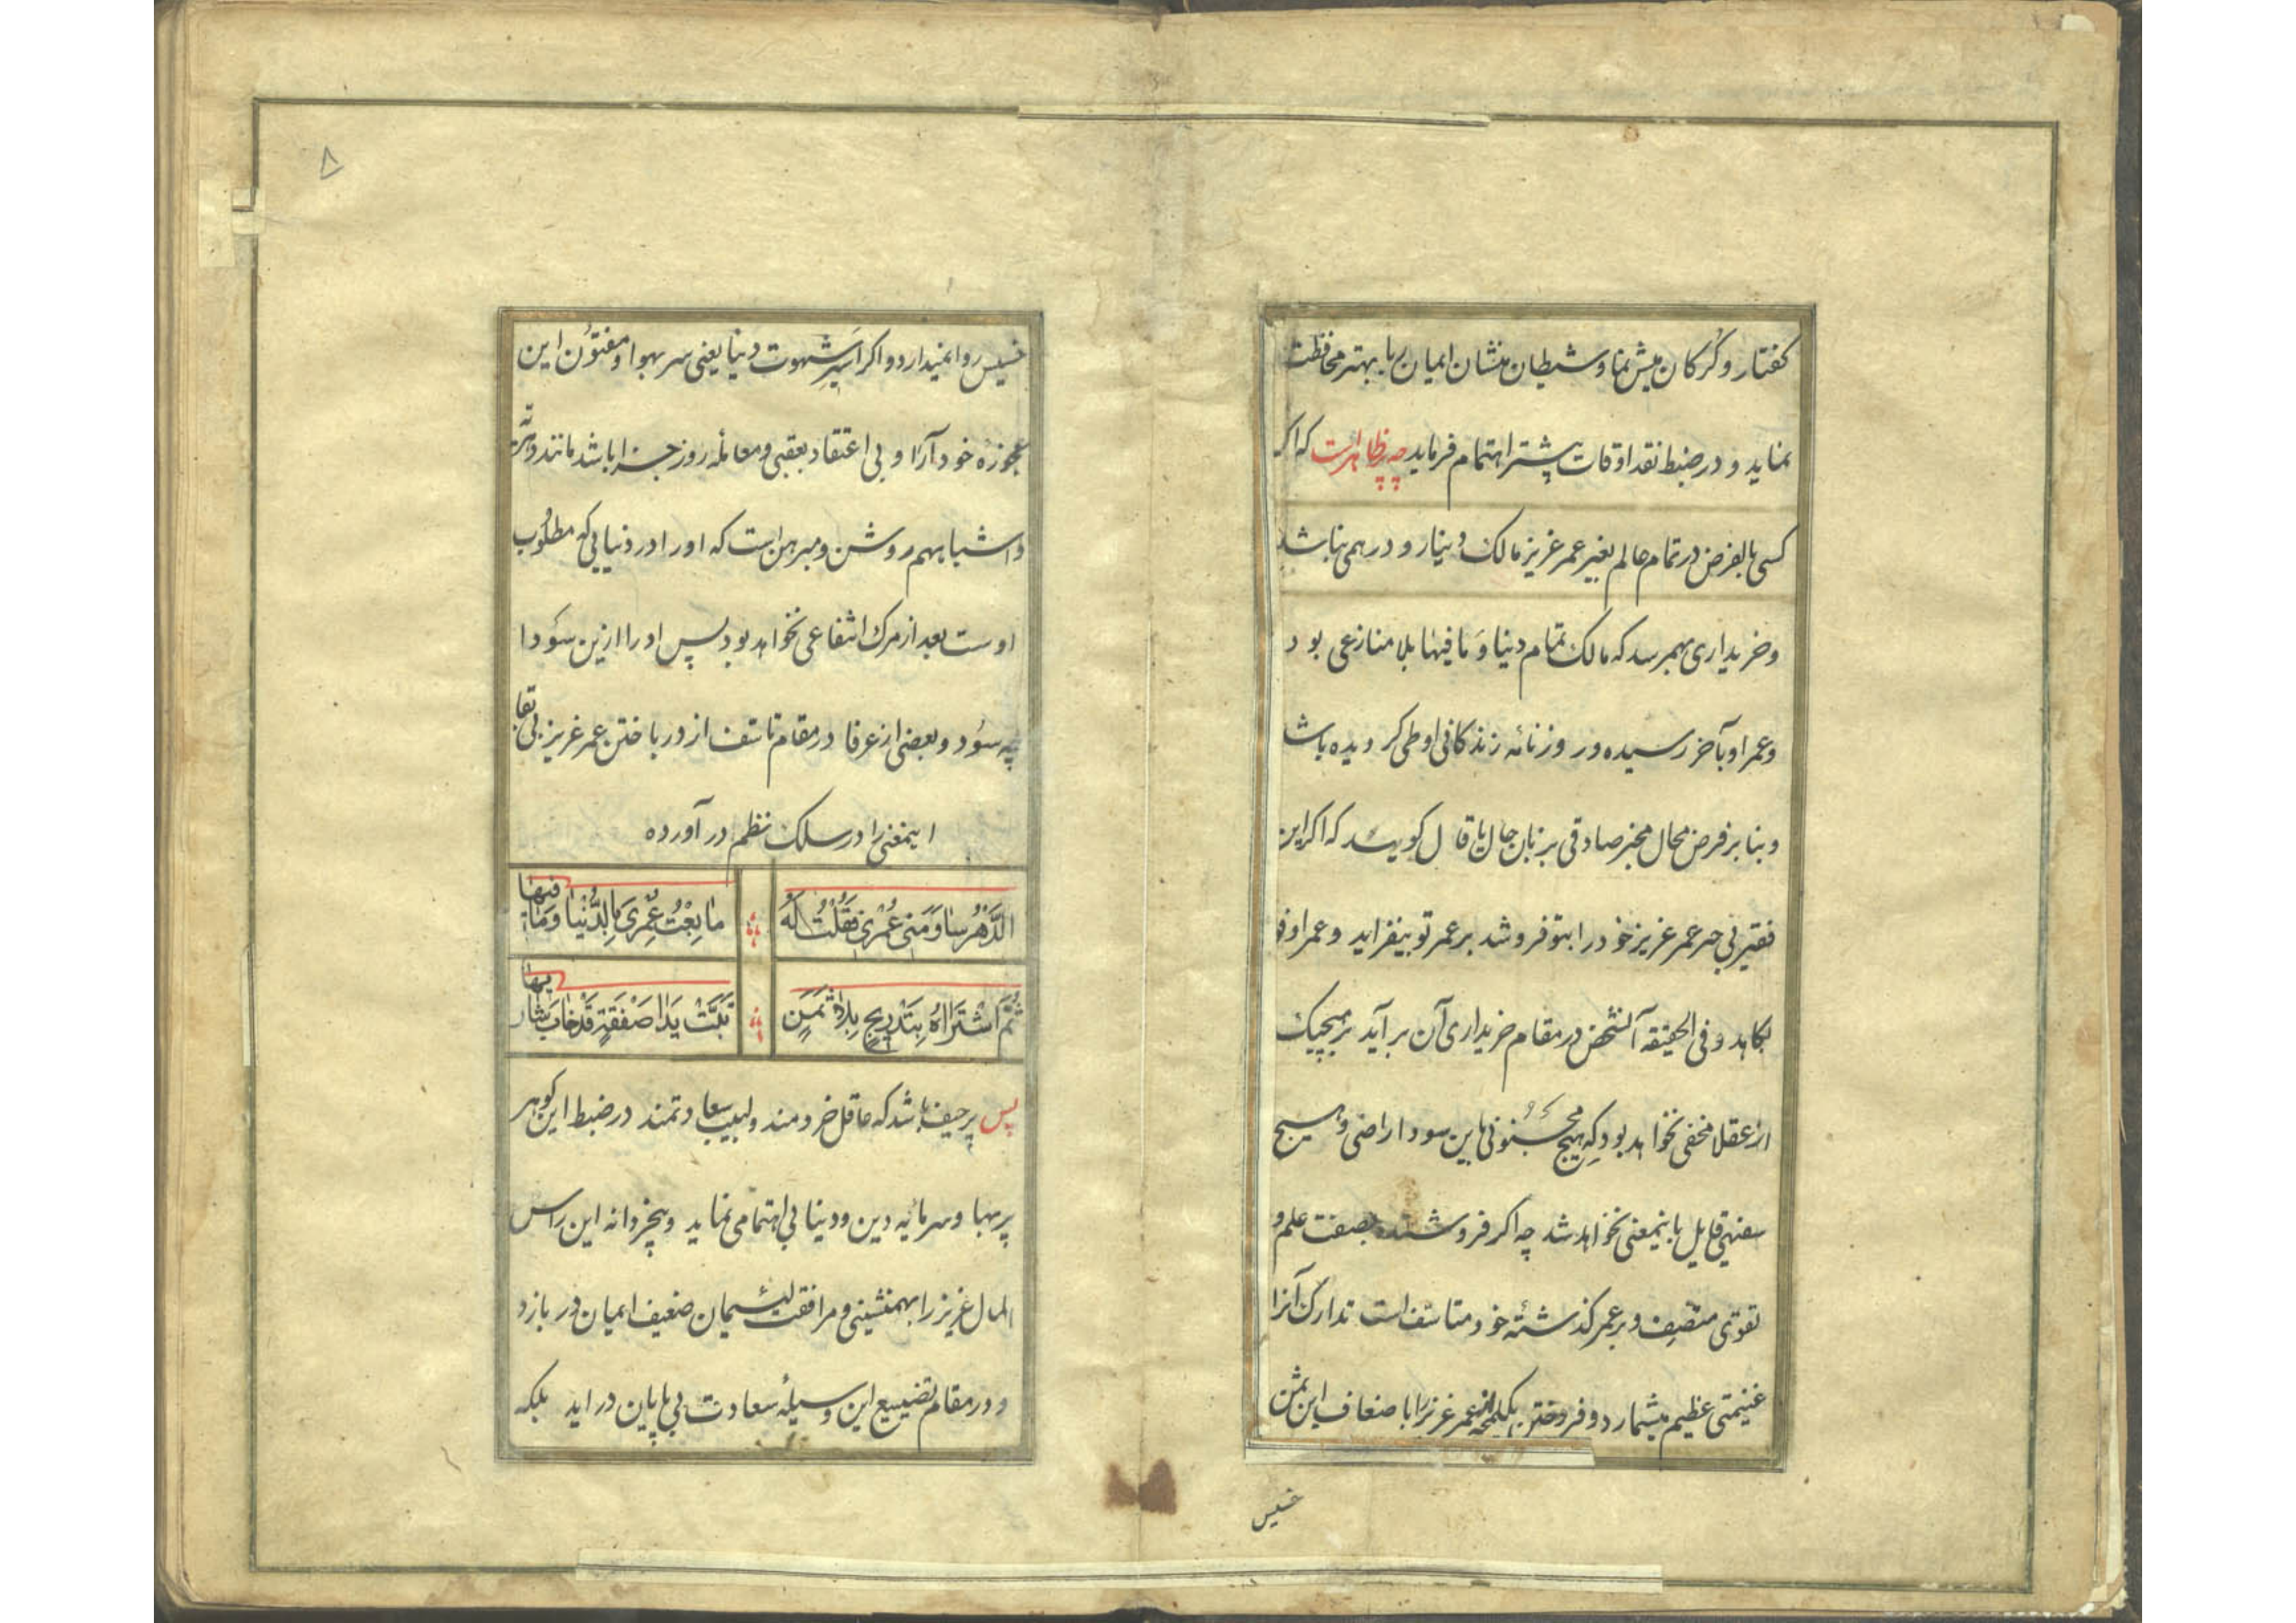 کفتار و کُرکان میش نما و شیطان منشان ایمان ربا بهتر محافظت
نماید و در ضبط نقد اوقات پیشتر اهتمام فرماید چه ظاهر است که اکر
کسی بالفرض در تمام عالم بغیر عمر عزیز مالک دینار و درهمی نباشد
و خریداری بهمرسد که مالک تمام دنیا و مافیها بلا منازعی بود
و عمر او بآخر رسیده و روزنامه زندکانی او طی کردیده باشد
و بنا بر فرض محال مخبر صادقی بزبان حال یا قال کوید که اکر این
فقیر بی چیز عمر عزیز خود را بتو فروشد بر عمر تو بیفزاید و عمر او
بکاهد و فی الحقیقه آنشخص در مقام خریداری آن برآید بر هیچیک
از عقلا مخفی نخواهد بود که هیچ مجنونی باین سودا راضی و هیچ
سفیهی قایل باینمعنی نخواهد شد چه اکر فروشنده بصفت علم و
تقوی متصف و بر عمر کذشته خود متاسف است تدارک آنرا
غنیمتی عظیم میشمارد و فروختن یکلمحه از عمر عزیز را باضعاف این ثمن
خسیس
۸
خسیس روا نمیدارد و اکر اسیر شهوت دنیا یعنی سر بهوا و مفتون این
عجوزه خود آرا و بی اعتقاد بعقبی و معامله روز جزا باشد مانند
و اشباههم روشن و مبرهن است که او را در دنیایی که مطلوب
اوست بعد از مرک انتفاعی نخواهد بود پس او را ازین سودا
چه سود و بعضی از عرفا در مقام تاسف از در باختن عمر عزیز بی بقا
اینمعنی را در سلک نظم در آورده
الدَّهْرُ سٰاوَمَنی عُمْری فَقُلْتُ لَهُ مٰا بِعْتُ عُمْری بِالدُّنْیٰا وَمٰا فیهٰا
ثُمَّ اشْتَرٰاهُ بِتَدْریجٍ بِلاٰ ثَمَنٍ تَبَّتْ یَدٰا صَفْقَةٍ قَدْ خٰابَ شٰاریهٰا
پس پر حیف باشد که عاقل خردمند و لبیب سعادتمند در ضبط این کوهر
پر بها و سرمایه دین و دنیا بی اهتمامی نماید و بیخردانه این راس
المال عزیز را بهمنشینی و مرافقت لئیمان ضعیف ایمان در بازد
و در مقام تضییع این وسیله سعادت بی پایان در آید بلکه